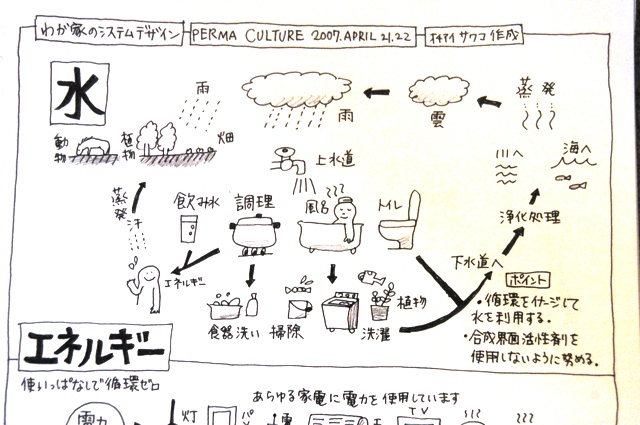 わが家のシステムデザイン
PERMA CULTURE 2007. APRIL 21.22
オチアイ サワコ 作成
水
雨
雨
雲
蒸発
動物
植物
畑
上水道
川へ
海へ
蒸発
汗
飲み水
調理
風呂
トイレ
浄化処理
エネルギー
下水道へ
食器洗い
掃除
洗濯
植物
ポイント
・循環をイメージして
水を利用する。
・合成界面活性剤を
使用しないように努める。
エネルギー
使いっぱなしで循環ゼロ
あらゆる家電に電力を使用しています
電力
灯
TV